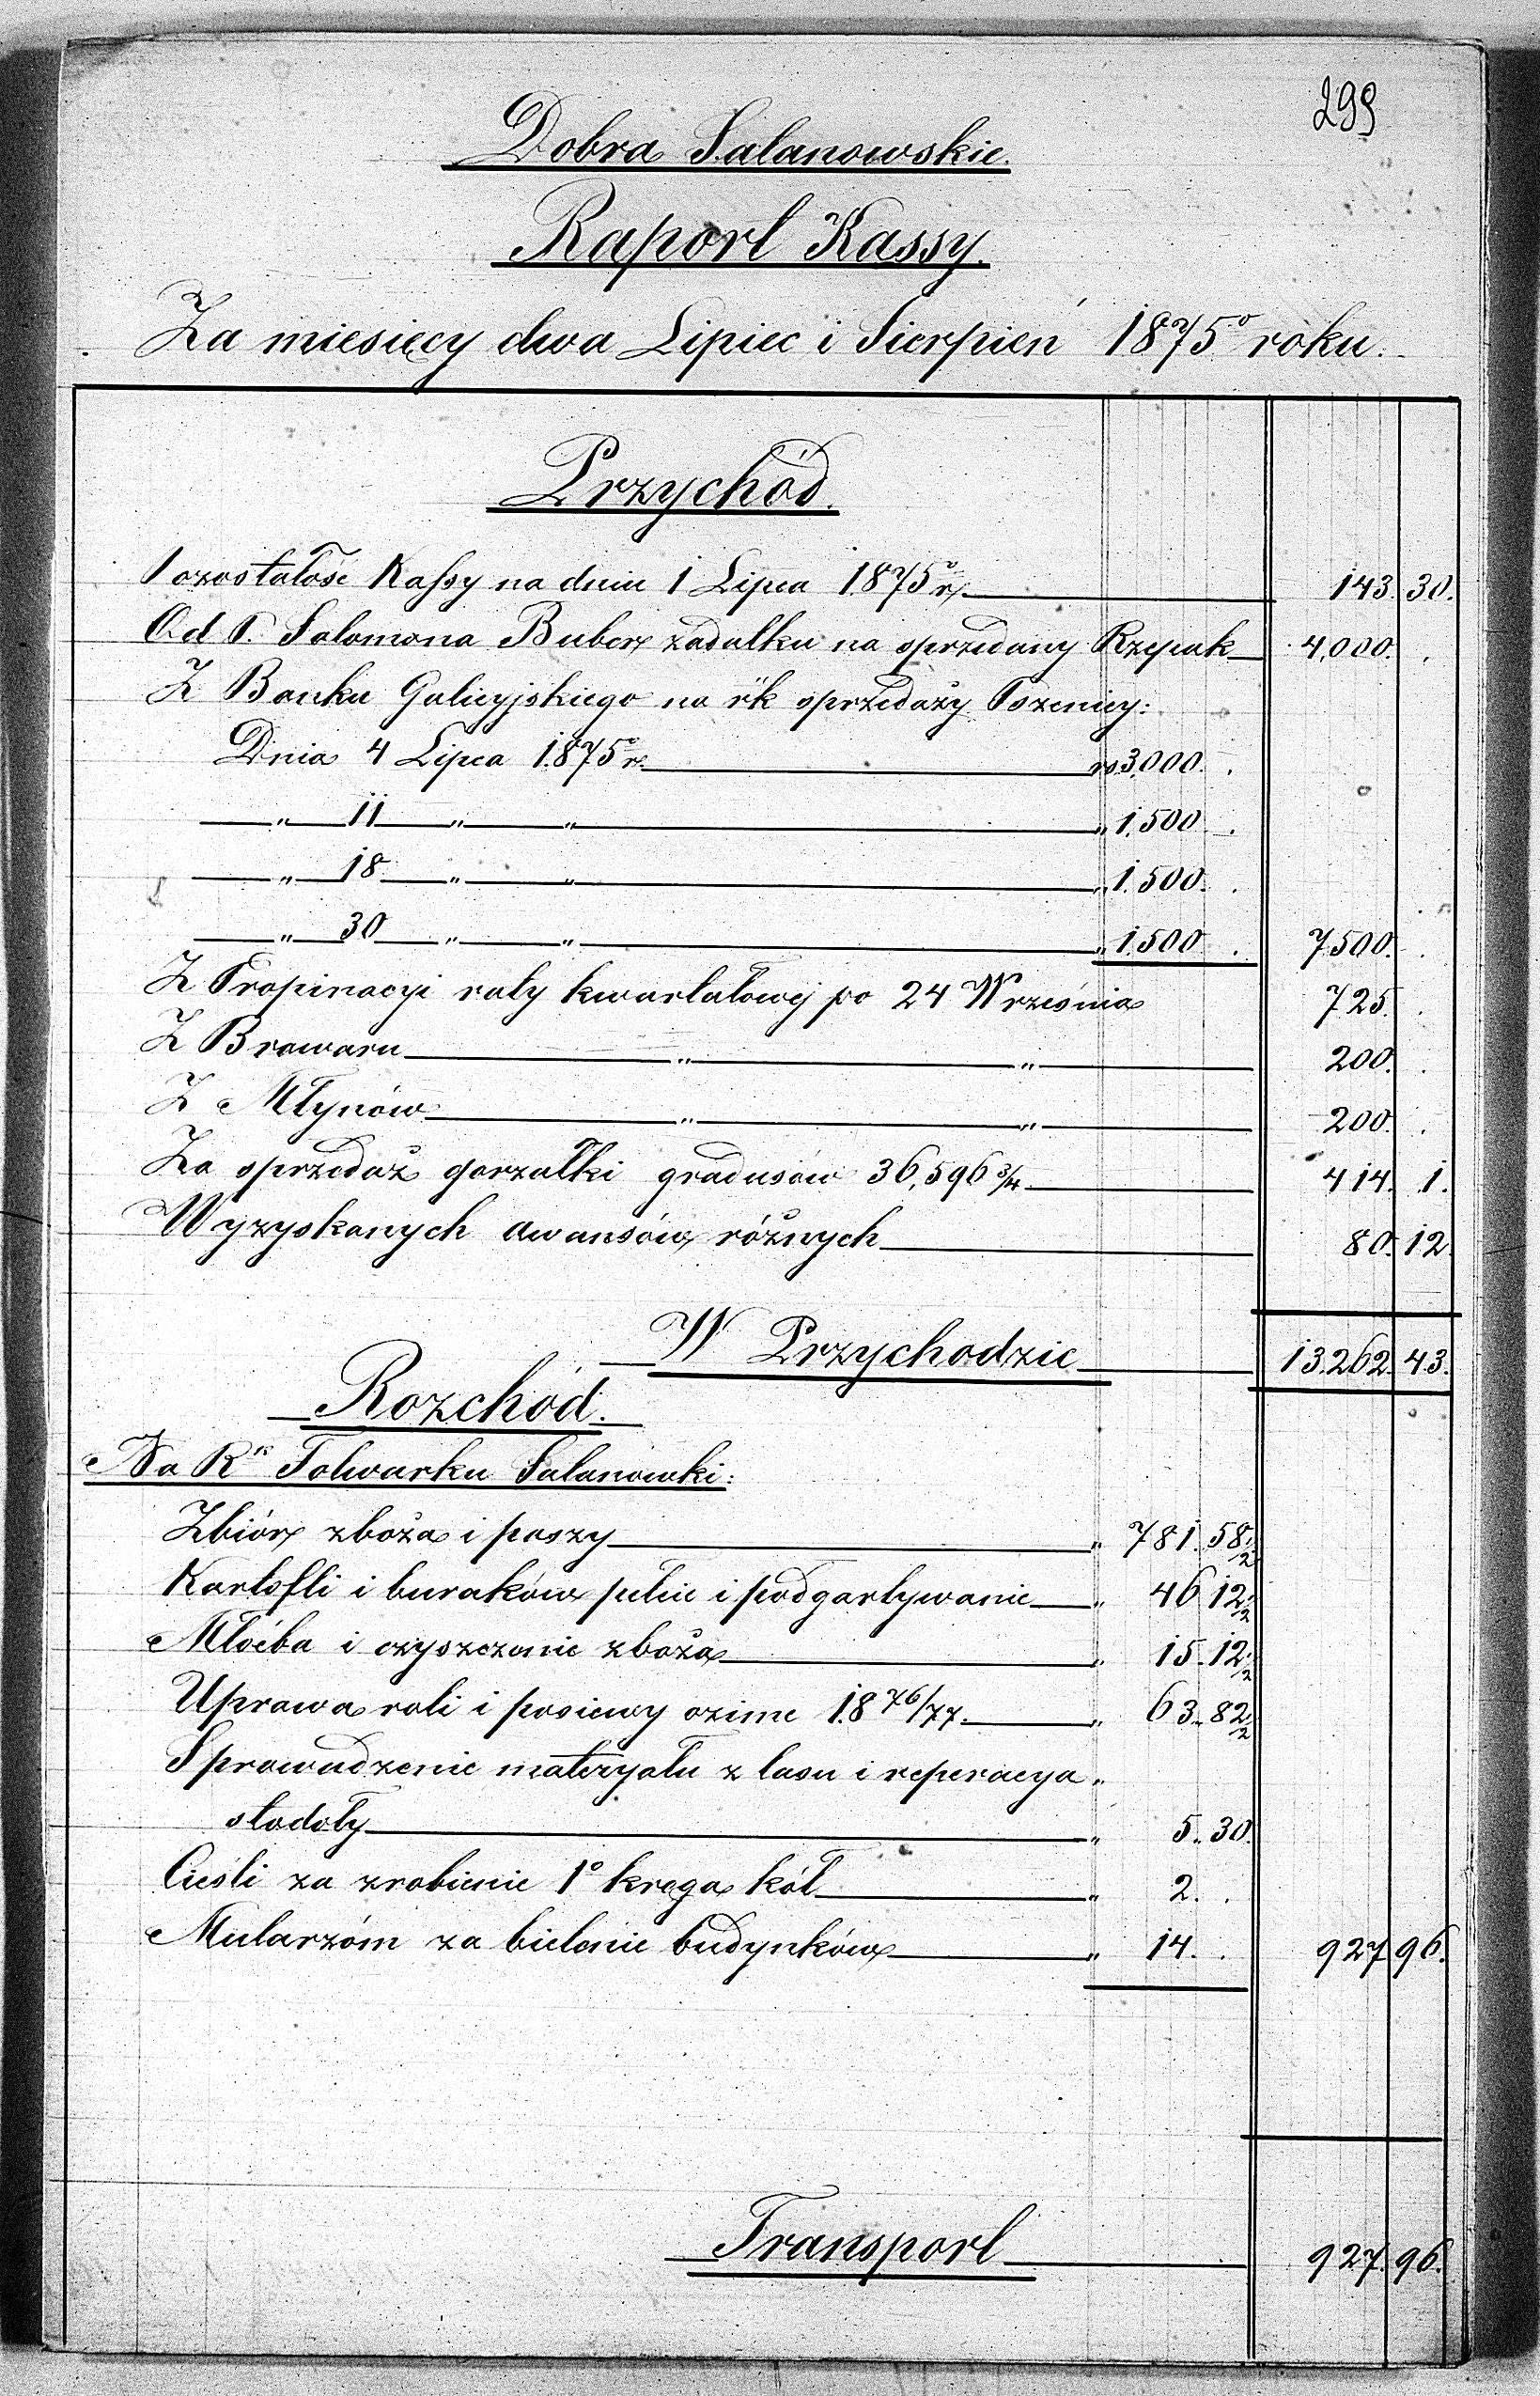 299
Dobra Satanowskie.
Raport Kassy.
Za miesięcy dwa Lipiec i Sierpień 1875º roku.
Przychód.
Pozostałość Kassy na dniu 1 Lipca 1875º r. 143. 30.
Od P. Salomona Buber zadatku na sprzedany Rzepak 4,000. .
Z Banku Galicyjskiego na rk sprzedaży Pszenicy:
Dnia 4 Lipca 1875º r. rs 3,000. .
" 11 " " " 1,500 .
" 18 " " " 1,500. .
" 30 " " " 1,500 . 7500. .
Z Propinacyi raty kwartałowej po 24 Września 725. .
Z Browaru " " 200. .
Z Młynów " " 200. .
Za sprzedaż gorzałki gradusów 36,596 3/4 414. 1.
Wyzyskanych awansów różnych 80. 12.
W Przychodzie 13.262. 43.
Rozchód.
Na Rk Folwarku Satanówki:
Zbiór zboża i paszy " 781. 58 1/2
Kartofli i buraków pełcie i podgartywanie " 46 12 1/2
Młóćba i czyszczenie zboża " 15. 12 1/2
Uprawa roli i posiewy ozime 18 76/77. " 63. 82 1/2
Sprowadzenie materyału z lasu i reperacya "
stodoły " 5. 30.
Cieśli za zrobienie 1º kręga kół " 2. .
Mularzóm za bielenie budynków " 14. . 927 96.
Transport 927. 96.